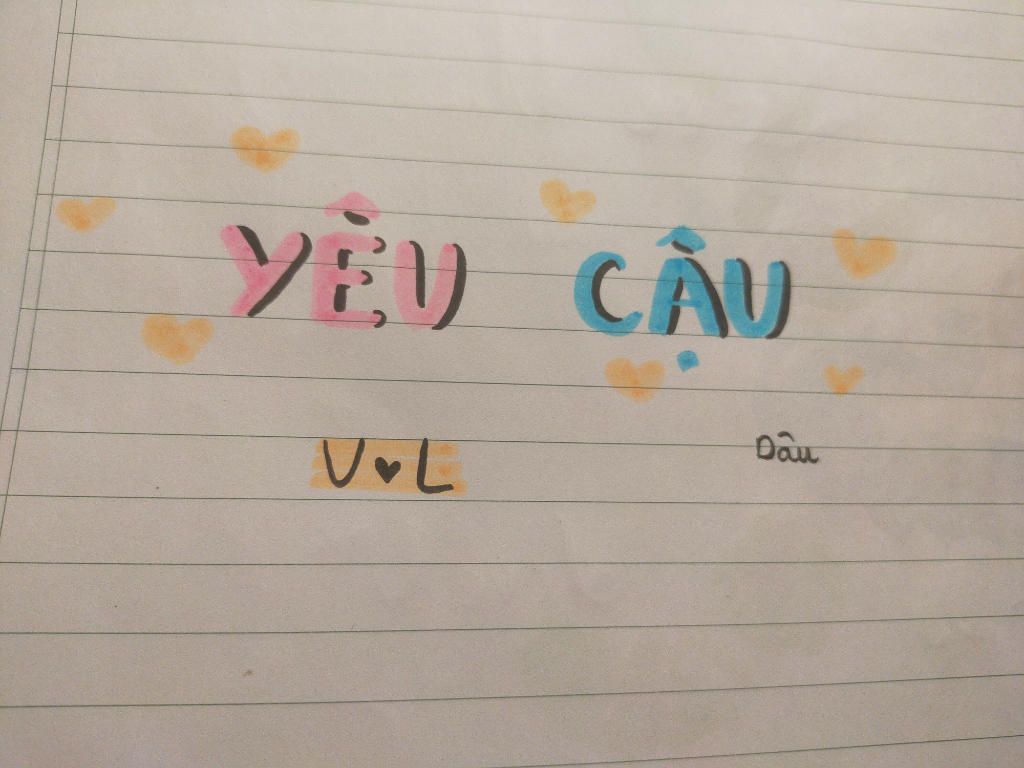 YÊU CẬU
V♥L
Dâu